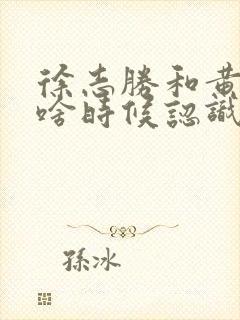 徐志勝和黄
啥時候認識
孫冰